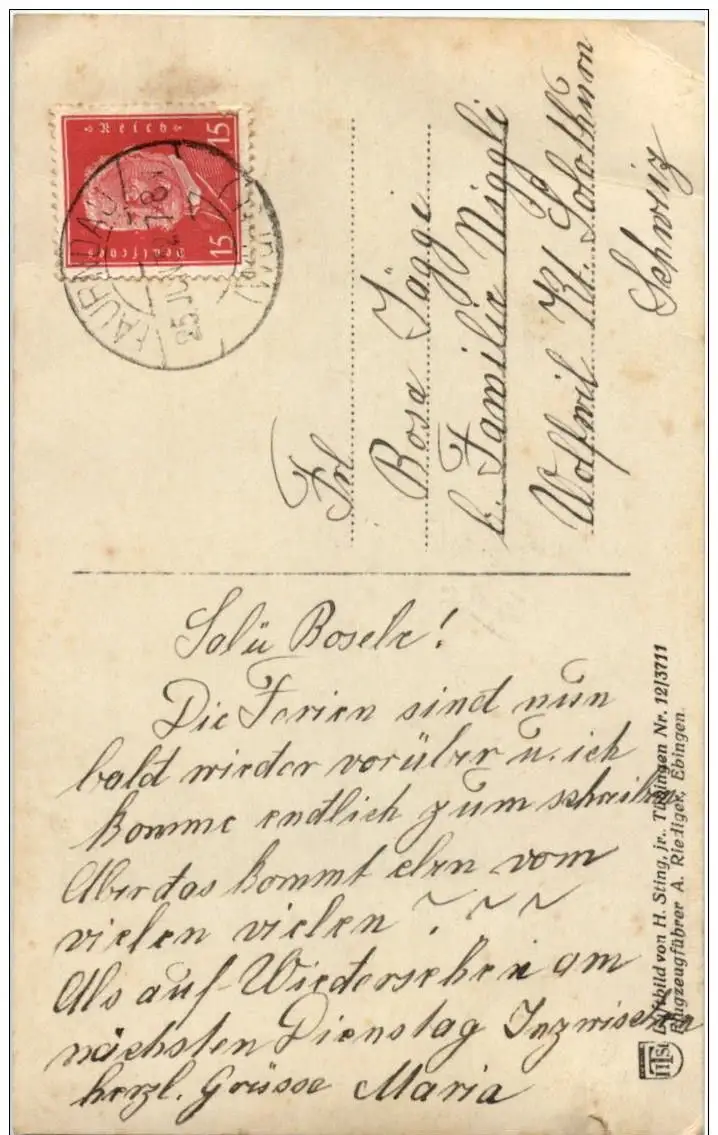 Deutsches
Reich
15
15
25.JUN
7-8V
Frl
Rosa Jäggi
b. Familie Niggli
Wolfwil Kt. Solothurn
Schweiz
Salü Rosele!
Die Ferien sind nun
bald wieder vorüber u. ich
komme endlich zum schreiben
Aber das kommt eben vom
vielen vielen ? ~ ~ ~
Als auf Wiedersehen am
nächsten Dienstag Inzwischen
herzl. Grüsse Maria
Luftbild von H. Sting, jr., Tübingen Nr. 12/3711
Flugzeugführer A. Riediger, Ebingen.